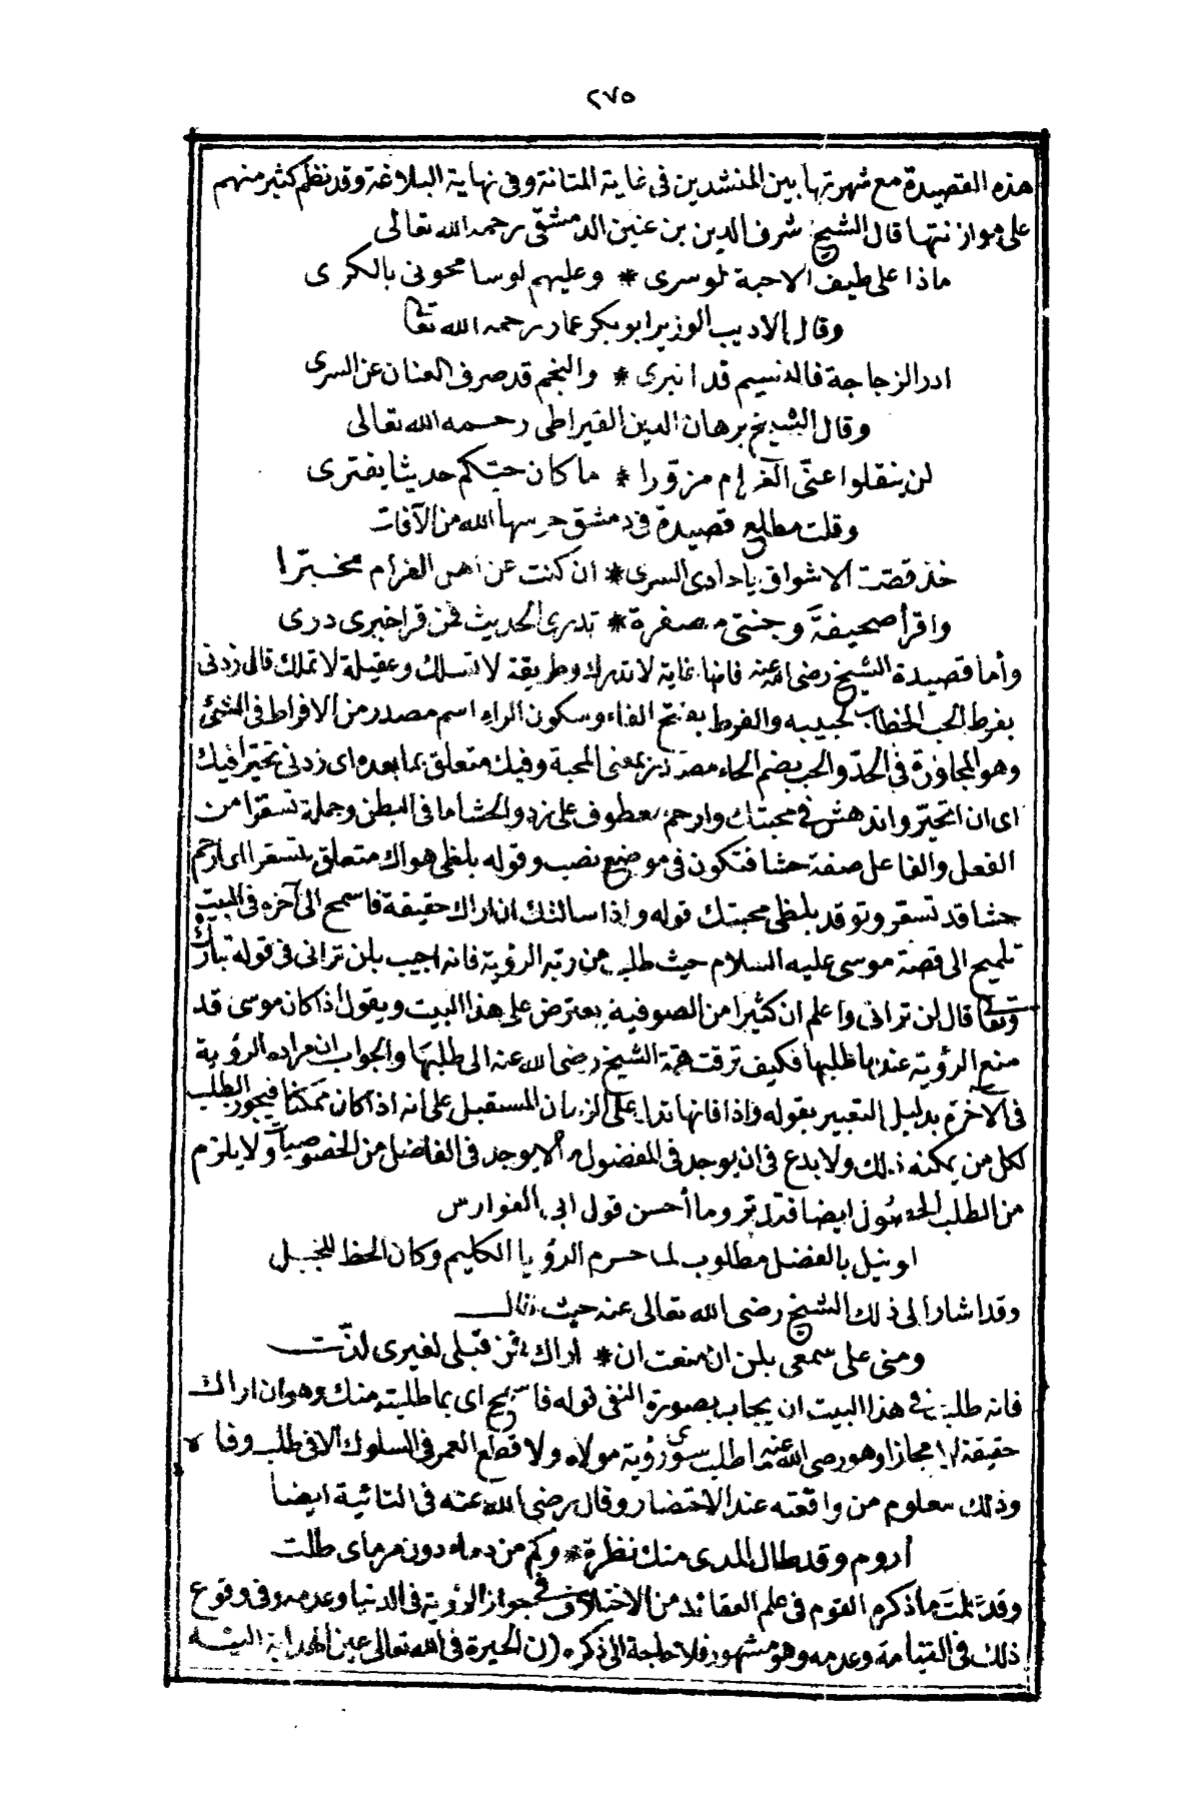 ٢٧٥
هذه القصيدة مع شهرتها بين المنشدين فى غاية المتانة وفى نهاية البلاغة وقد نظم كثير منهم
على موازنتها قال الشيخ شرف الدين بن عنين الدمشقى رحمه الله تعالى
ماذا على طيف الاحبة لو سرى * وعليهم لو سامحونى بالكرى
وقال الاديب الوزير ابو بكر عمار رحمه الله تعا
ادر الزجاجة فالنسيم قد انبرى * والنجم قد صرف العنان عن السرى
وقال الشيخ برهان الدين القيراطى رحمه الله تعالى
لن ينقلوا عنى الغرام مزورا * ما كان حبكم حديثا يفترى
وقلت مطالع قصيدة فى دمشق حرسها الله من الآفات
خذ قصة الاشواق يا حادى السرى * ان كنت عن اهل الغرام مخبرا
واقرأ صحيفة وجنتى مصفرة * تدرى الحديث فمن قرا خبرى درى
وأما قصيدة الشيخ رضى الله عنه فانها غاية لا تدرك وطريقة لا تسلك وعقيلة لا تملك قال زدنى
بفرط الحب الخطاب لحبيبه والفرط بفتح الفاء وسكون الراء اسم مصدر من الافراط فى الشئ
وهو المجاوزة فى الحدّ والحب بضم الحاء مصدر بمعنى المحبة وفيك متعلق بما بعده اى زدنى تحيرا فيك
اى ان اتحير واندهش فى محبتك وارحم معطوف على زد والحشا ما فى البطن وجملة تسعرا من
الفعل والفاعل صفة حشا فتكون فى موضع نصب وقوله بلظى هواك متعلق بتسعرا اى ارحم
حشا قد تسعر وتوقد بلظى محبتك قوله واذا سالتك ان اراك حقيقة فاسمح الى آخره فى البيت
تلميح الى قصة موسى عليه السلام حيث طلب من ربه الرؤية فانه اجيب بلن ترانى فى قوله تبارك
وتعالى قال لن ترانى واعلم ان كثيرا من الصوفية يعترض على هذا البيت ويقول اذا كان موسى قد
منع الرؤية عند ما طلبها فكيف ترقت همة الشيخ رضى الله عنه الى طلبها والجواب ان مراده الرؤية
فى الآخرة بدليل التعبير بقوله واذا فانها تدل على الزمان المستقبل على أنه اذا كان ممكنا فيجوز الطلب
لكل من يمكنه ذلك ولا بدع فى ان يوجد فى المفضول ما لا يوجد فى الفاضل من الخصوصيات ولا يلزم
من الطلب الحصول ايضا فتدبر وما أحسن قول ابى الفوارس
او نيل بالفضل مطلوب لما حرم الرؤيا الكليم وكان الحظ للجبل
وقد اشار الى ذلك الشيخ رضى الله تعالى عنه حيث قال
ومنى على سمعى بلن ان منعت ان * اراك فمن قبلى لغيرى لذّت
فانه طلب فى هذا البيت ان يجاب بصورة النفى قوله فاسمح اى بما طلبته منك وهو ان اراك
حقيقة لا مجازا وهو رضى الله عنه ما طلب سوى رؤية مولاه ولا قطع العمر فى السلوك الا فى طلب وفاه
وذلك معلوم من واقعته عند الاحتضار وقال رضى الله عنه فى التائية ايضا
أروم وقد طال المدى منك نظرة * وكم من دماء دون مرماى طلت
وقد علمت ما ذكره القوم فى علم العقائد من الاختلاف فى جواز الرؤية فى الدنيا وعدمه وفى وقوع
ذلك فى القيامة وعدمه وهو مشهور فلا حاجة الى ذكره (ن الحيرة فى الله تعالى عين الهداية اليه